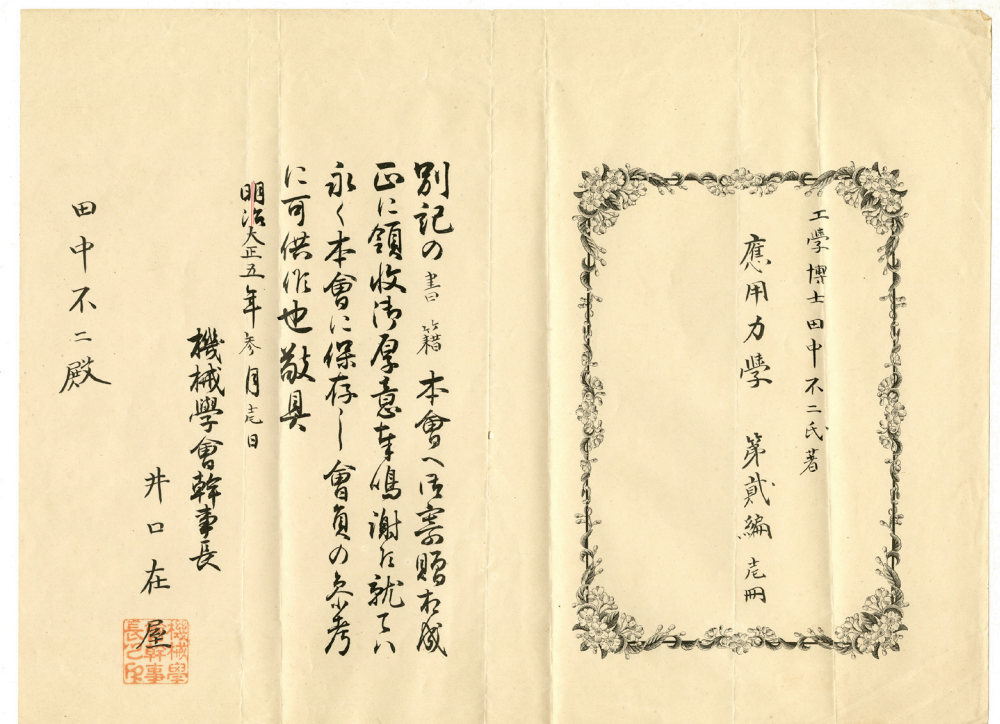 工學博士田中不二氏著
應用力學 第貳編 壱冊
別記の書籍本會へ御寄贈相成
正に領收御厚意奉鳴謝候就てハ
永く本會に保存し會員の参考
に可供候也敬具
明治大正五年参月壱日
機械學會幹事長
井口在屋
田中不二殿
機械學
會幹事
長之印